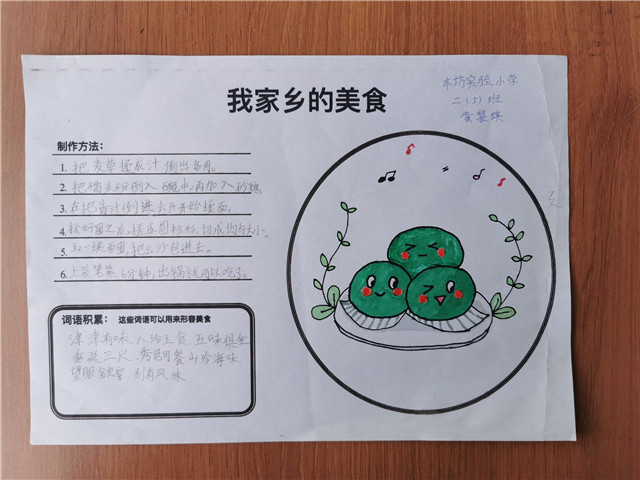 我家乡的美食
实验小学
二(5)班
制作方法:
1. 把麦草揉成汁倒出备用。
2. 把糯米粉倒入碗中,再加入砂糖。
3. 在把青汁倒进去开始揉面。
4. 揉好面之后,搓成圆柱形,切成均匀大小。
5. 取一块面团,把豆沙包进去。
6. 上蒸笼蒸 分钟,出锅就可以吃了。
词语积累: 这些词语可以用来形容美食
津津有味、人给主食、五味俱全
垂涎三尺、秀色可餐、山珍海味
别有风味